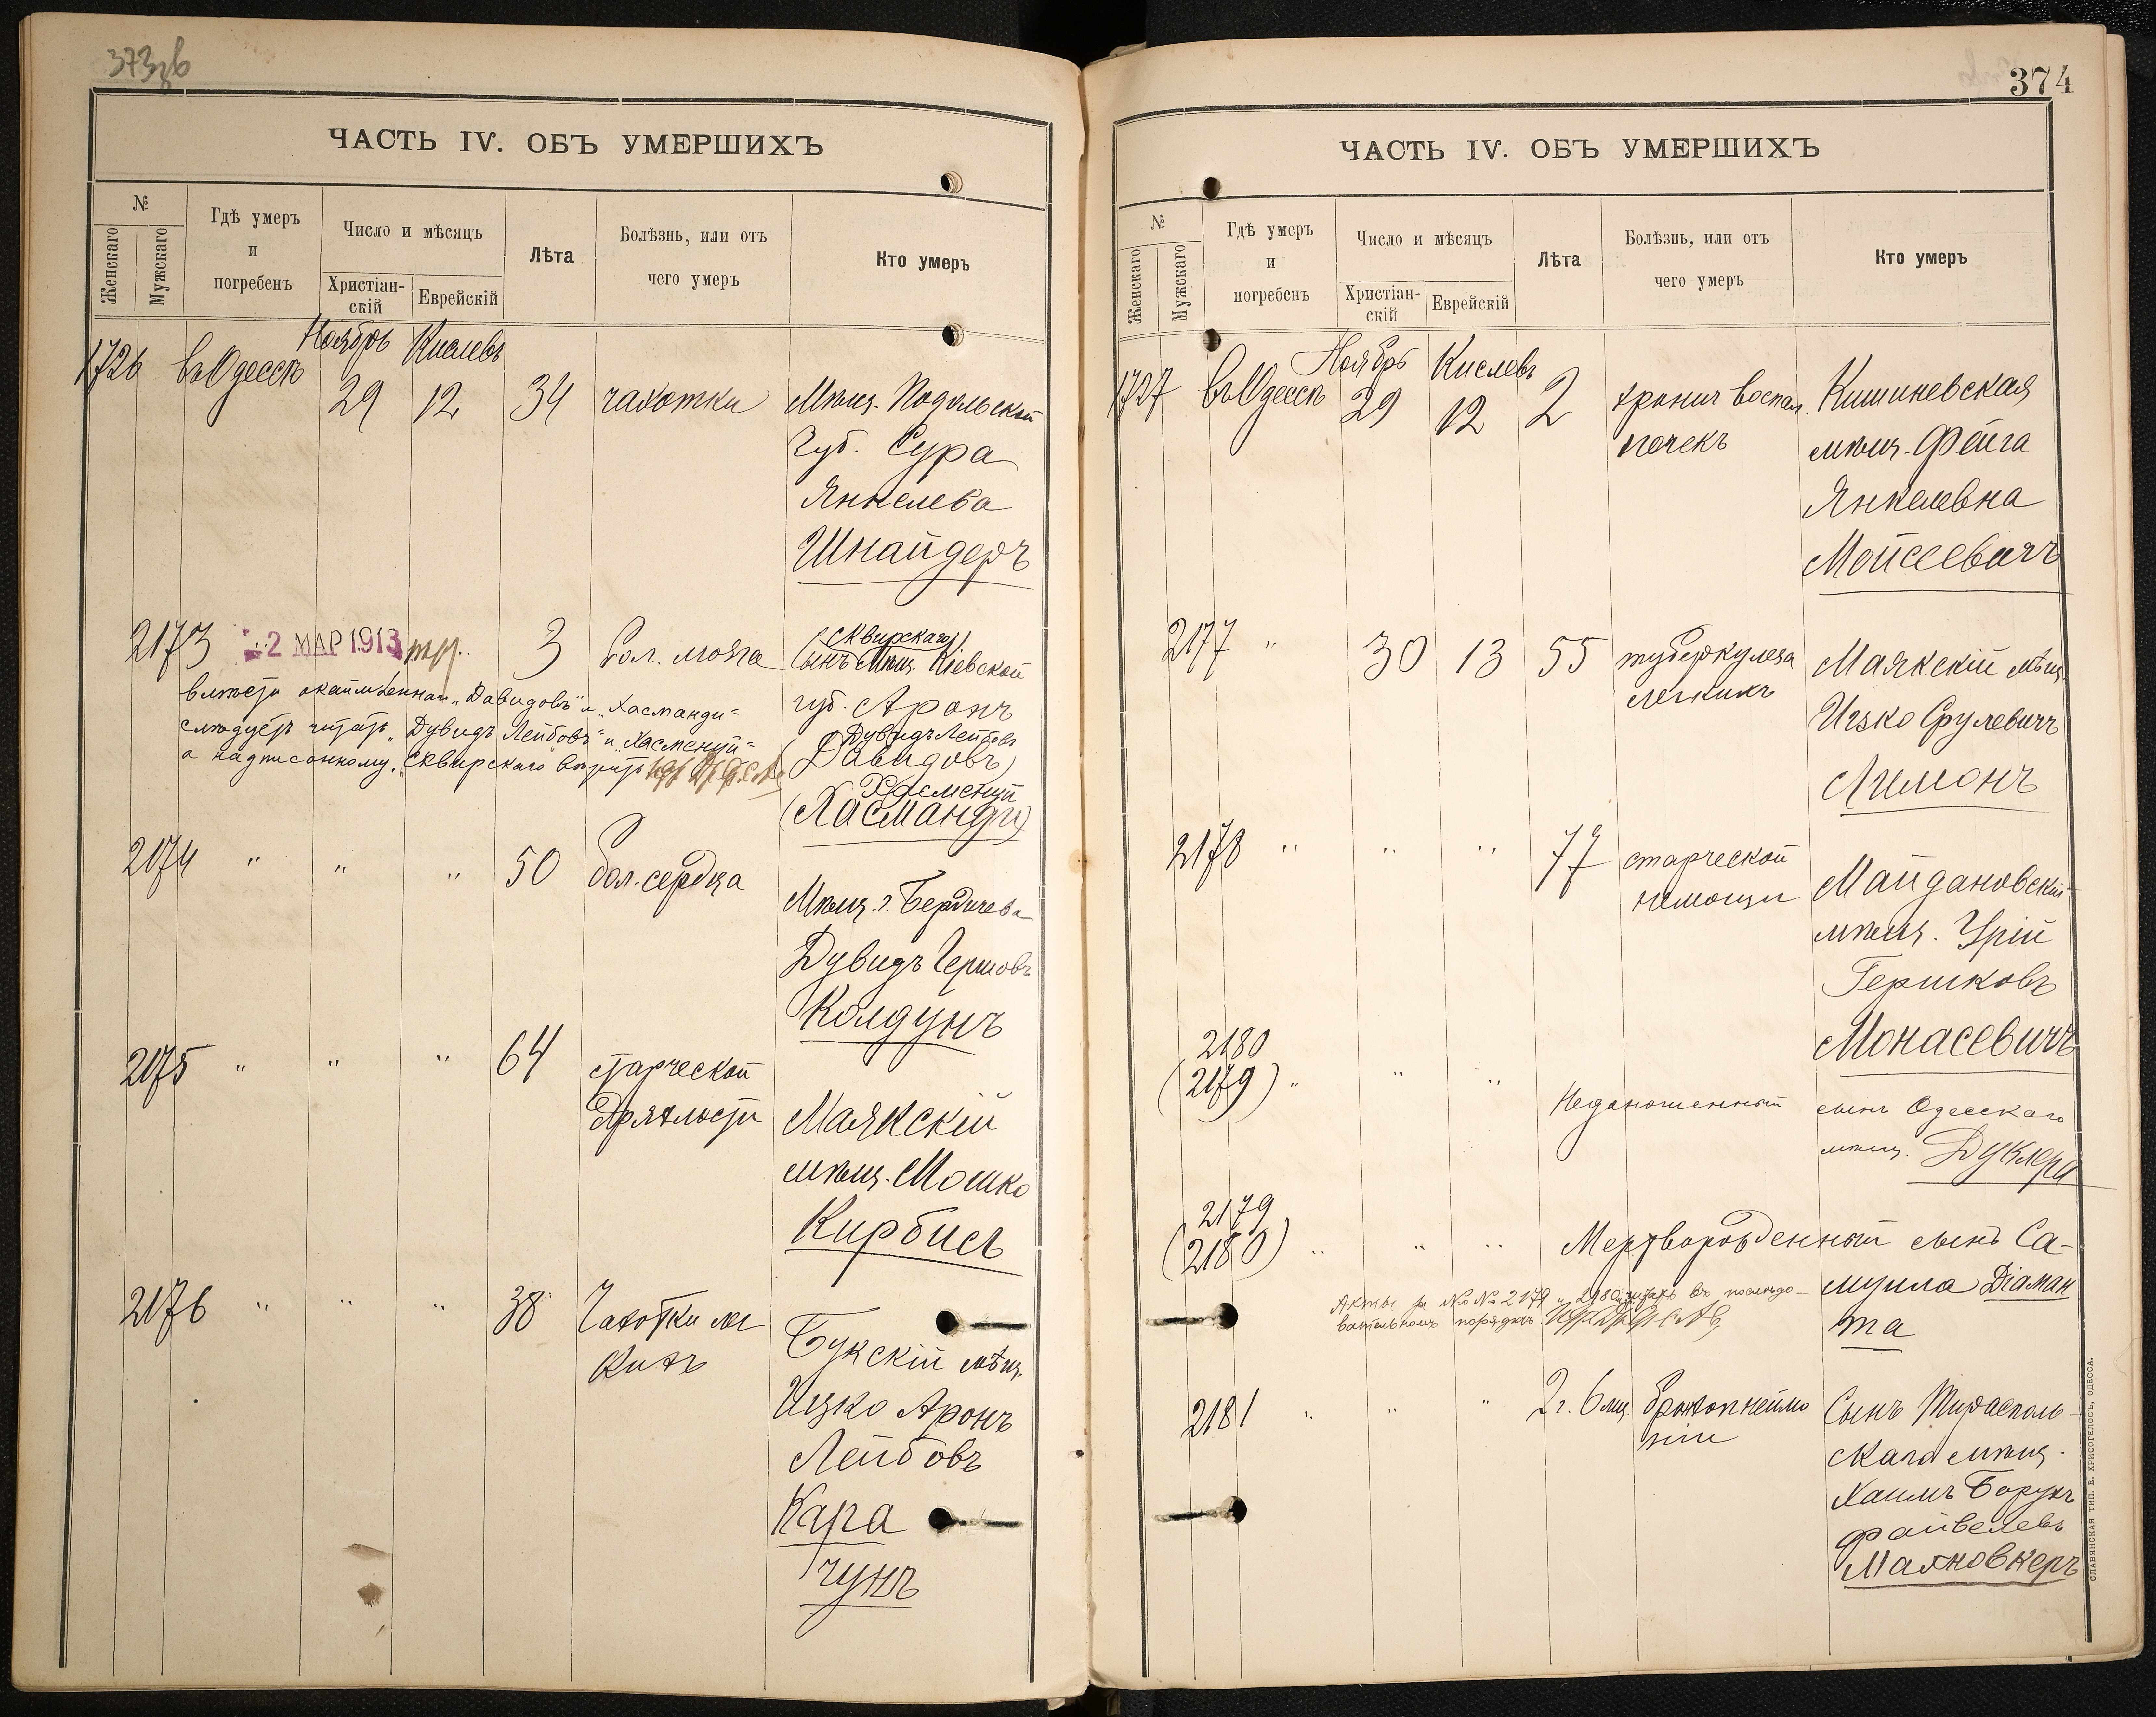 373зв
ЧАСТЬ IV. ОБЪ УМЕРШИХЪ
№
Женскаго
Мужскаго
Гдѣ умеръ
и
погребенъ
Число и мѣсяцъ
Христіан-
скій
Еврейскій
Лѣта
Болѣзнь, или отъ
чего умеръ
Кто умеръ
Ноябрь Кислевъ
1726 въ Одессѣ 29 12 34 чахотки Мѣщ. Подольской
Губ. Сура
Янкелева
Шнайдеръ
Сквирскаго
2173 2 МАР 1913 3 бол. мозга (сынъ Мѣщ. Кіевской
вмѣсто окаймленнаго „Давидовъ" и „Хасманди"
губ. Аронъ
слѣдуетъ читать „Дувидъ Лейбовъ" и „Хасменуй"
Дувидъ Лейбовъ
(Давидовъ)
а надписанному „Сквирскаго вѣрить
Хасменуй
(Хасманди)
2074 " " " 50 бол. сердца
Мѣщ. г. Бердичева
Дувидъ Гершовъ
Колдунъ
2075 " " " 64 старческой
дряхлости Маякскій
мѣщ. Мошко
Кирбисъ
2076 " " " 38 Чахотки лег
кихъ Букскій мѣщ.
Ицко Аронъ
Лейбовъ
Кара
чунъ
374
ЧАСТЬ IV. ОБЪ УМЕРШИХЪ
№
Женскаго
Мужскаго
Гдѣ умеръ
и
погребенъ
Число и мѣсяцъ
Христіан-
скій
Еврейскій
Лѣта
Болѣзнь, или отъ
чего умеръ
Кто умеръ
Ноябрь Кислевъ
1727 въ Одессѣ 29 12 2 хронич. воспал. Кишиневская
почекъ мѣщ. Фейга
Янкелевна
Мойсеевичъ
2177 " 30 13 55 туберкулеза Маякскій мѣщ.
легкихъ
Ицко Срулевичъ
Лимонъ
2178 " " " 77 старческой Майдановскій
немощи мѣщ. Урій
Гершковъ
Монасевичъ
2180
(2179) " " " Недоношенный сынъ Одесскаго
мѣщ. Дуклера
2179
(2180) " " " Мертворожденный сынъ Са-
муила Діаман
та
Акты за №№ 2179 и 2180 читать въ послѣдо-
вательномъ порядкѣ
2181 " " " 2 г. 6 мц. бронхопнеймо
ніи Сынъ Тирасполь-
скаго мѣщ.
Хаимъ Борухъ
Файвелевъ
Маяновкеръ
СЛАВЯНСКАЯ ТИП. Е. ХРИСОГЕЛОСЪ, ОДЕССА.